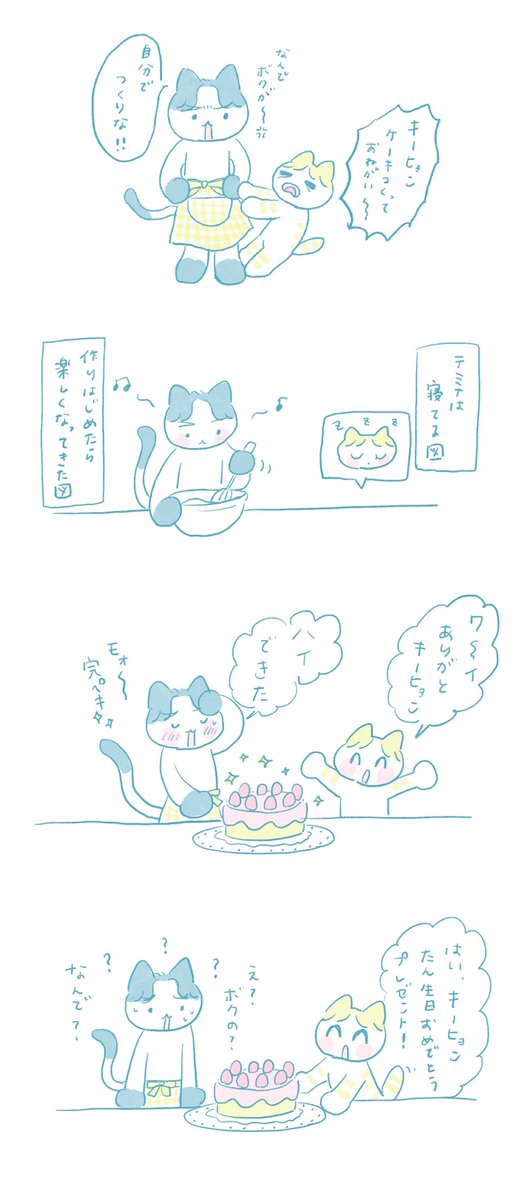 キーヒョン
ケーキつくって
おねがい〜〜
なんで
ボクが〜
自分で
つくりな!!
テミナは
寝てる図
z z z
作りはじめたら
楽しくなってきた図
ワ〜イ
ありがと
キーヒョン
ハイ
できた
モォ〜
完ペキ
はい、キーヒョン
たん生日おめでとう
プレゼント!
え?
ボクの?
?
?
?
なんで?〜